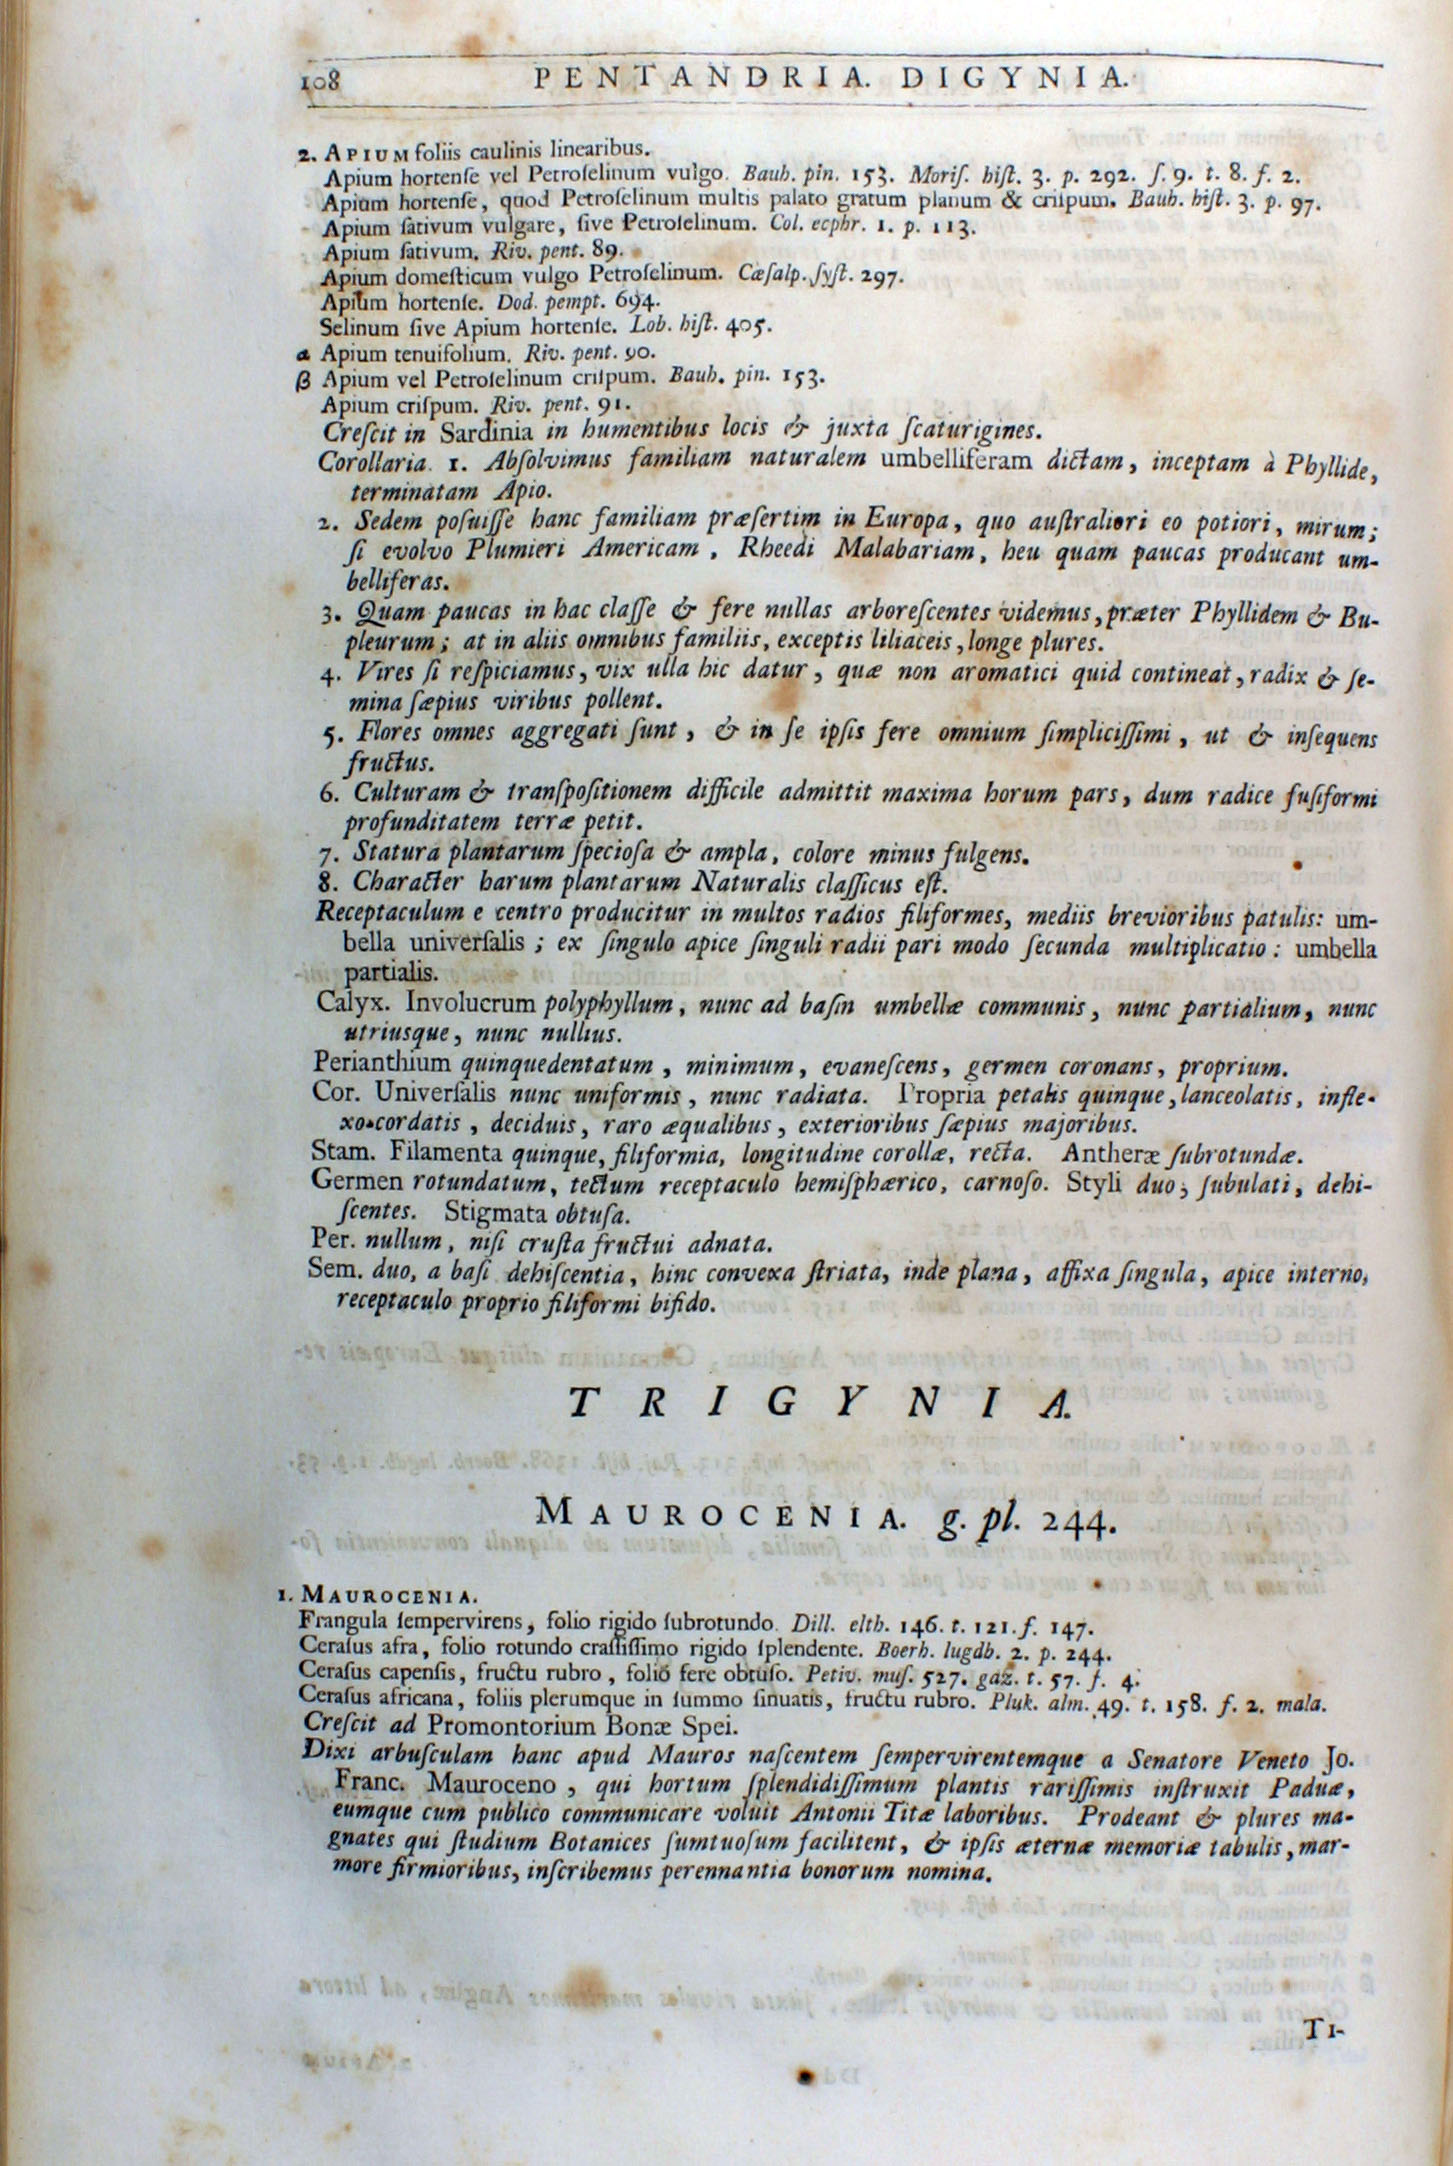 108 PENTANDRIA. DIGYNIA.
2. APIUM foliis caulinis linearibus.
Apium hortenſe vel Petroſelinum vulgo. Bauh. pin. 153. Moriſ. hiſt. 3. p. 292. ſ. 9. t. 8. f. 2.
Apium hortenſe, quod Petroſelinum multis palato gratum planum & criſpum. Bauh. hiſt. 3. p. 97.
Apium ſativum vulgare, ſive Petroſelinum. Col. ecphr. 1. p. 113.
Apium ſativum. Riv. pent. 89.
Apium domeſticum vulgo Petroſelinum. Cæſalp. ſyſt. 297.
Apium hortenſe. Dod. pempt. 694.
Selinum ſive Apium hortenſe. Lob. hiſt. 405.
α Apium tenuifolium. Riv. pent. 90.
β Apium vel Petroſelinum criſpum. Bauh. pin. 153.
Apium criſpum. Riv. pent. 91.
Creſcit in Sardinia in humentibus locis & juxta ſcaturigines.
Corollaria. 1. Abſolvimus familiam naturalem umbelliferam dictam, inceptam à Phyllide,
terminatam Apio.
2. Sedem poſuiſſe hanc familiam præſertim in Europa, quo auſtraliori eo potiori, mirum;
ſi evolvo Plumieri Americam, Rheedi Malabariam, heu quam paucas producant um-
belliferas.
3. Quam paucas in hac claſſe & fere nullas arboreſcentes videmus, præter Phyllidem & Bu-
pleurum; at in aliis omnibus familiis, exceptis liliaceis, longe plures.
4. Vires ſi reſpiciamus, vix ulla hic datur, quæ non aromatici quid contineat, radix & ſe-
mina ſæpius viribus pollent.
5. Flores omnes aggregati ſunt, & in ſe ipſis fere omnium ſimpliciſſimi, ut & inſequens
fructus.
6. Culturam & tranſpoſitionem difficile admittit maxima horum pars, dum radice fuſiformi
profunditatem terræ petit.
7. Statura plantarum ſpecioſa & ampla, colore minus fulgens.
8. Character harum plantarum Naturalis claſſicus eſt.
Receptaculum e centro producitur in multos radios filiformes, mediis brevioribus patulis: um-
bella univerſalis; ex ſingulo apice ſinguli radii pari modo ſecunda multiplicatio: umbella
partialis.
Calyx. Involucrum polyphyllum, nunc ad baſin umbellæ communis, nunc partialium, nunc
utriusque, nunc nullius.
Perianthium quinquedentatum, minimum, evaneſcens, germen coronans, proprium.
Cor. Univerſalis nunc uniformis, nunc radiata. Propria petalis quinque, lanceolatis, infle-
xo-cordatis, deciduis, raro æqualibus, exterioribus ſæpius majoribus.
Stam. Filamenta quinque, filiformia, longitudine corollæ, recta. Antheræ ſubrotundæ.
Germen rotundatum, tectum receptaculo hemiſphærico, carnoſo. Styli duo, ſubulati, dehi-
ſcentes. Stigmata obtuſa.
Per. nullum, niſi cruſta fructui adnata.
Sem. duo, a baſi dehiſcentia, hinc convexa ſtriata, inde plana, affixa ſingula, apice interno,
receptaculo proprio filiformi bifido.
TRIGYNIA.
MAUROCENIA. g. pl. 244.
1. MAUROCENIA.
Frangula ſempervirens, folio rigido ſubrotundo. Dill. elth. 146. t. 121. f. 147.
Ceraſus afra, folio rotundo craſſiſſimo rigido ſplendente. Boerh. lugdb. 2. p. 244.
Ceraſus capenſis, fructu rubro, folio fere obtuſo. Petiv. muſ. 527. gaz. t. 57. f. 4.
Ceraſus africana, foliis plerumque in ſummo ſinuatis, fructu rubro. Pluk. alm. 49. t. 158. f. 2. mala.
Creſcit ad Promontorium Bonæ Spei.
Dixi arbuſculam hanc apud Mauros naſcentem ſempervirentemque a Senatore Veneto Jo.
Franc. Mauroceno, qui hortum ſplendidiſſimum plantis rariſſimis inſtruxit Paduæ,
eumque cum publico communicare voluit Antonii Titæ laboribus. Prodeant & plures ma-
gnates qui ſtudium Botanices ſumtuoſum facilitent, & ipſis æternæ memoriæ tabulis, mar-
more firmioribus, inſcribemus perennantia bonorum nomina.
TI-